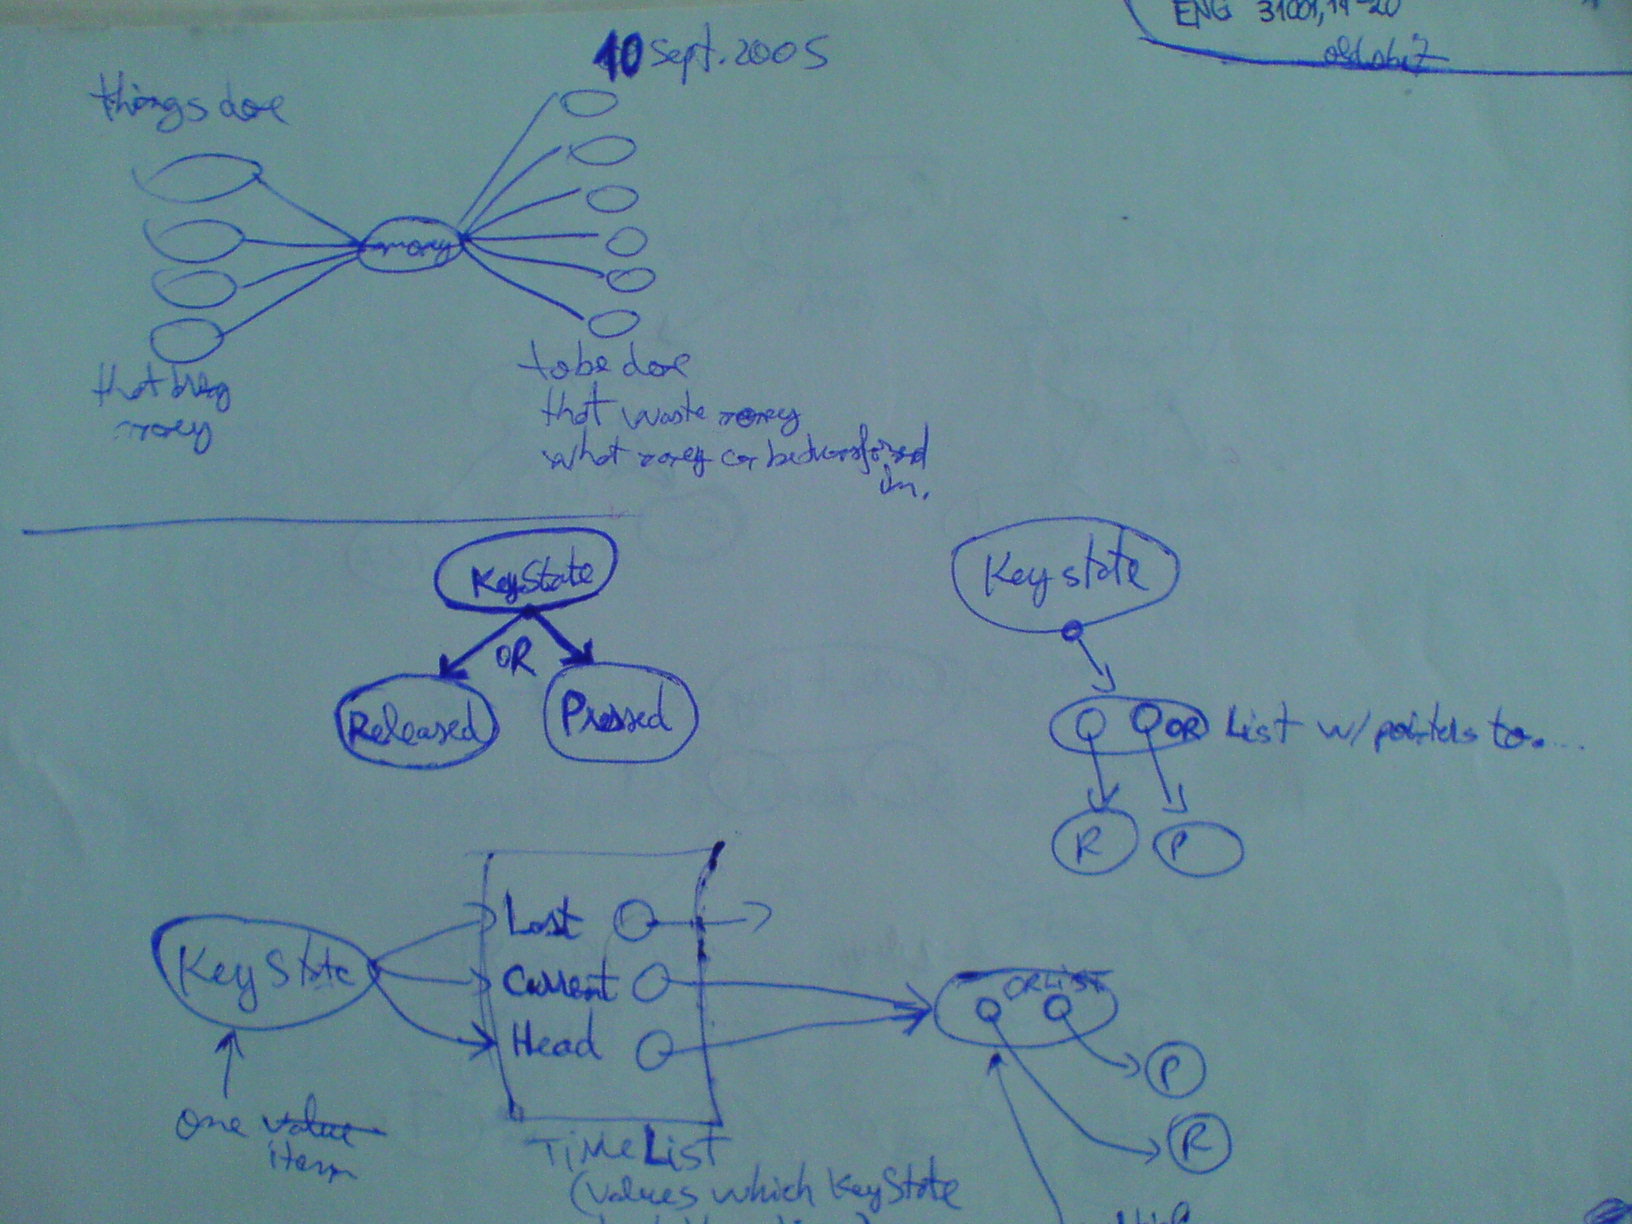 ENG 31001, 19-20
10 Sept. 2005
things done
money
that bring
money
to be done
that waste money
what money can be transformed
in.
KeyState
OR
Released
Pressed
Key state
OR List w/ pointers to....
R
P
Last
KeyState
Current
Head
ORLIST
P
R
one value
item
TIMELIST
(values which KeyState